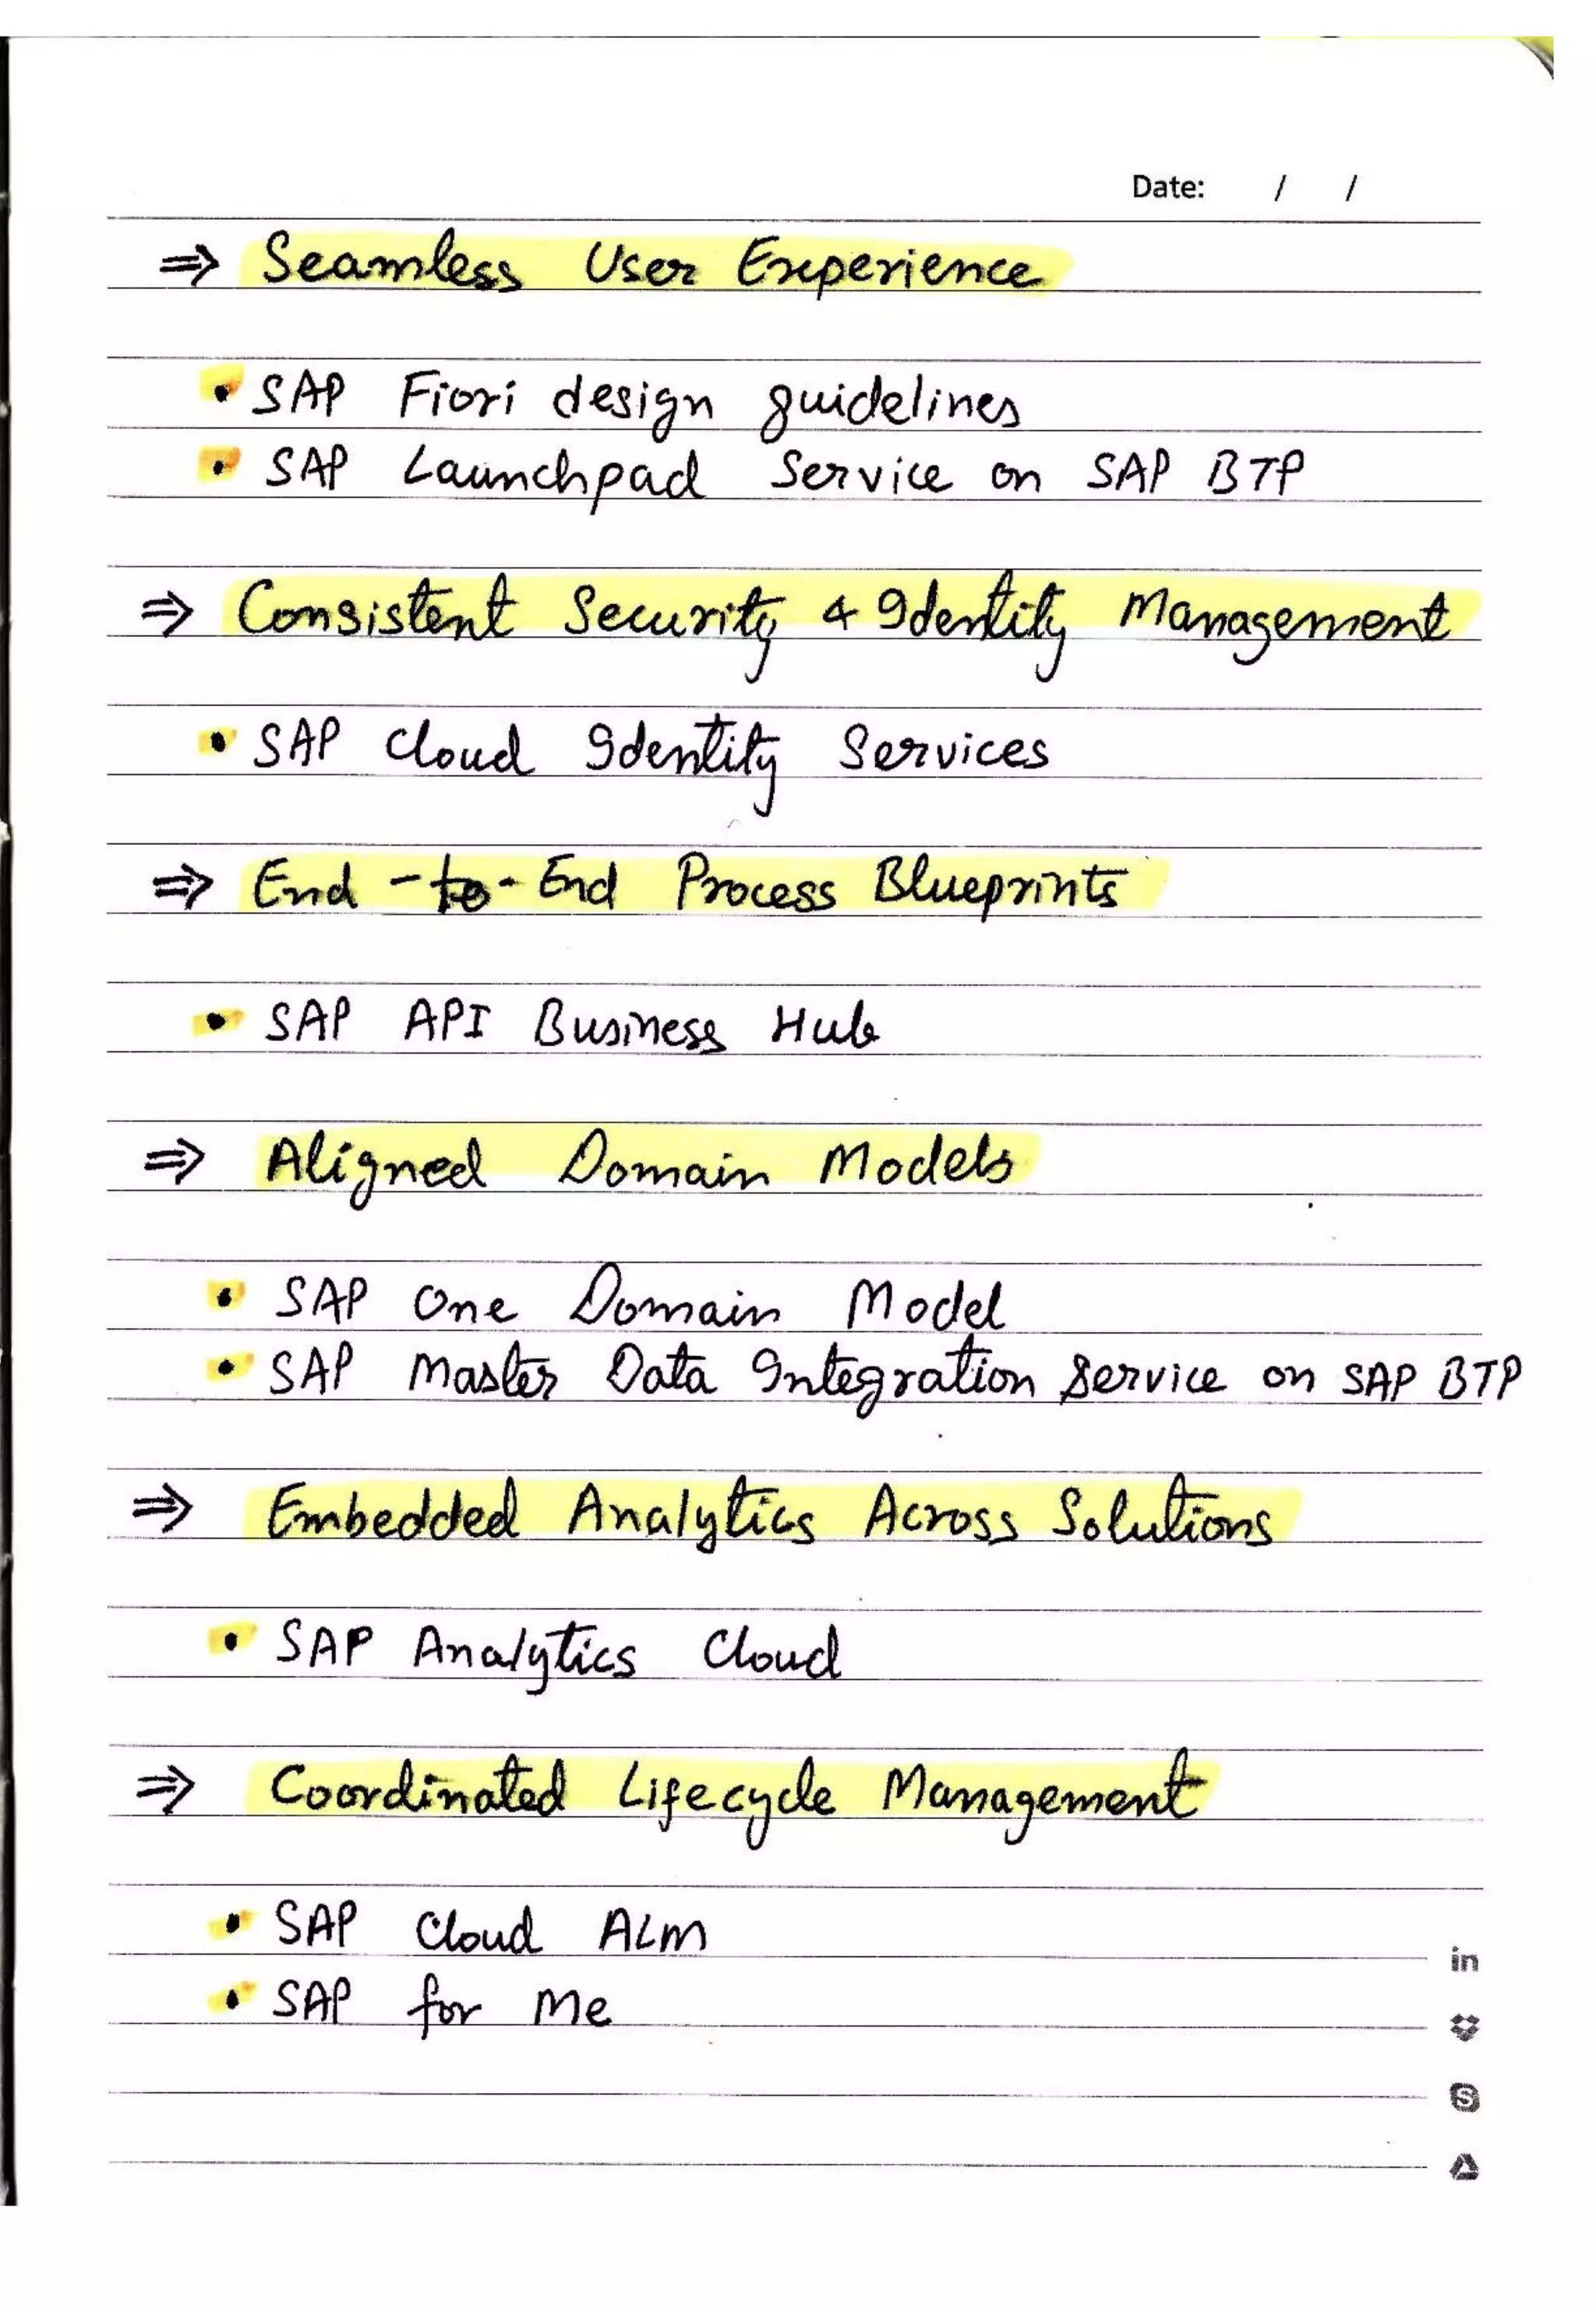 Date: / /
⇒ Seamless User Experience
• SAP Fiori design guidelines
• SAP Launchpad Service on SAP BTP
⇒ Consistent Security & Identity Management
• SAP Cloud Identity Services
⇒ End-to-End Process Blueprints
• SAP API Business Hub
⇒ Aligned Domain Models
• SAP One Domain Model
• SAP Master Data Integration Service on SAP BTP
⇒ Embedded Analytics Across Solutions
• SAP Analytics Cloud
⇒ Coordinated Lifecycle Management
• SAP Cloud ALM
• SAP for Me
in